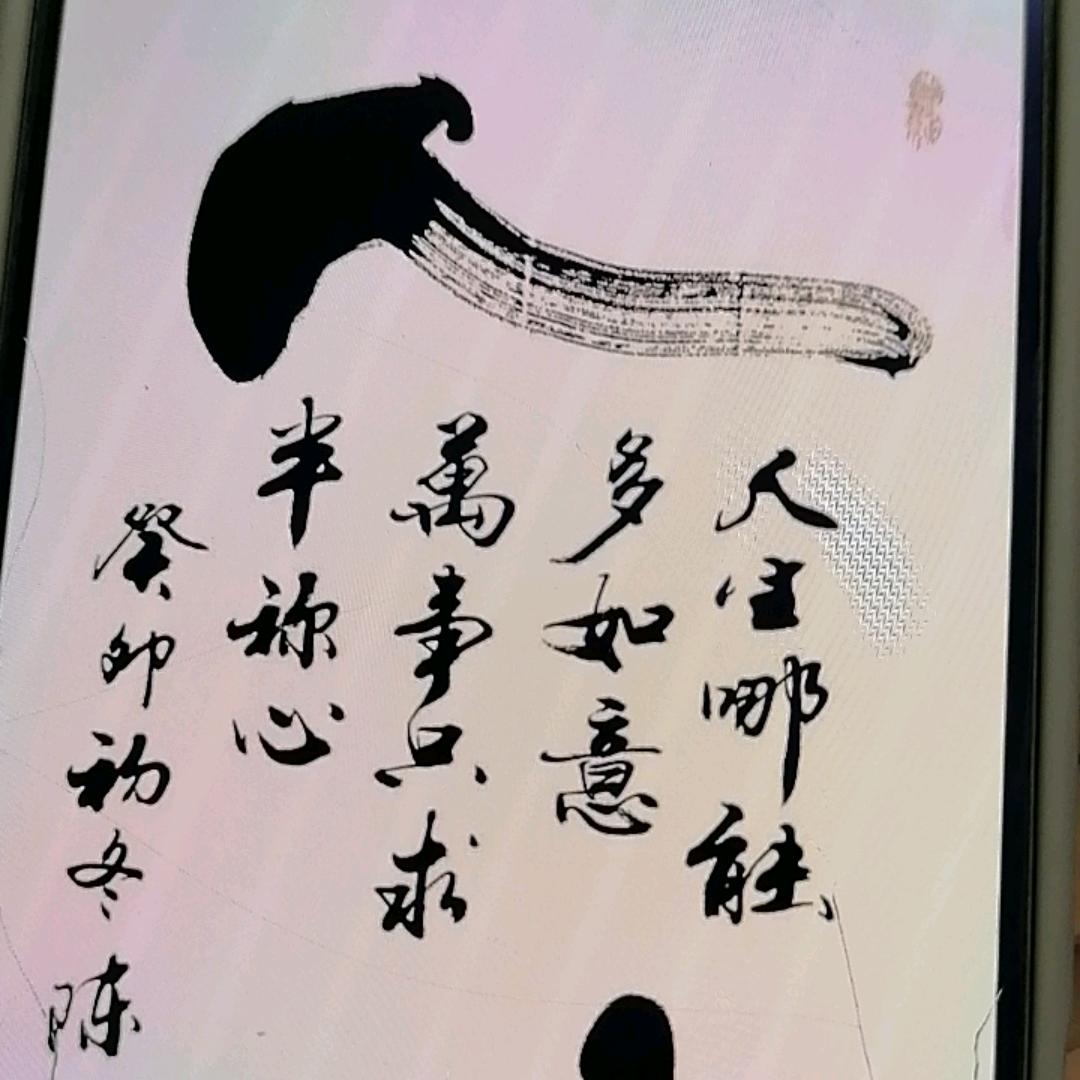 人生哪能
多如意
萬事只求
半称心
癸卯初冬陈